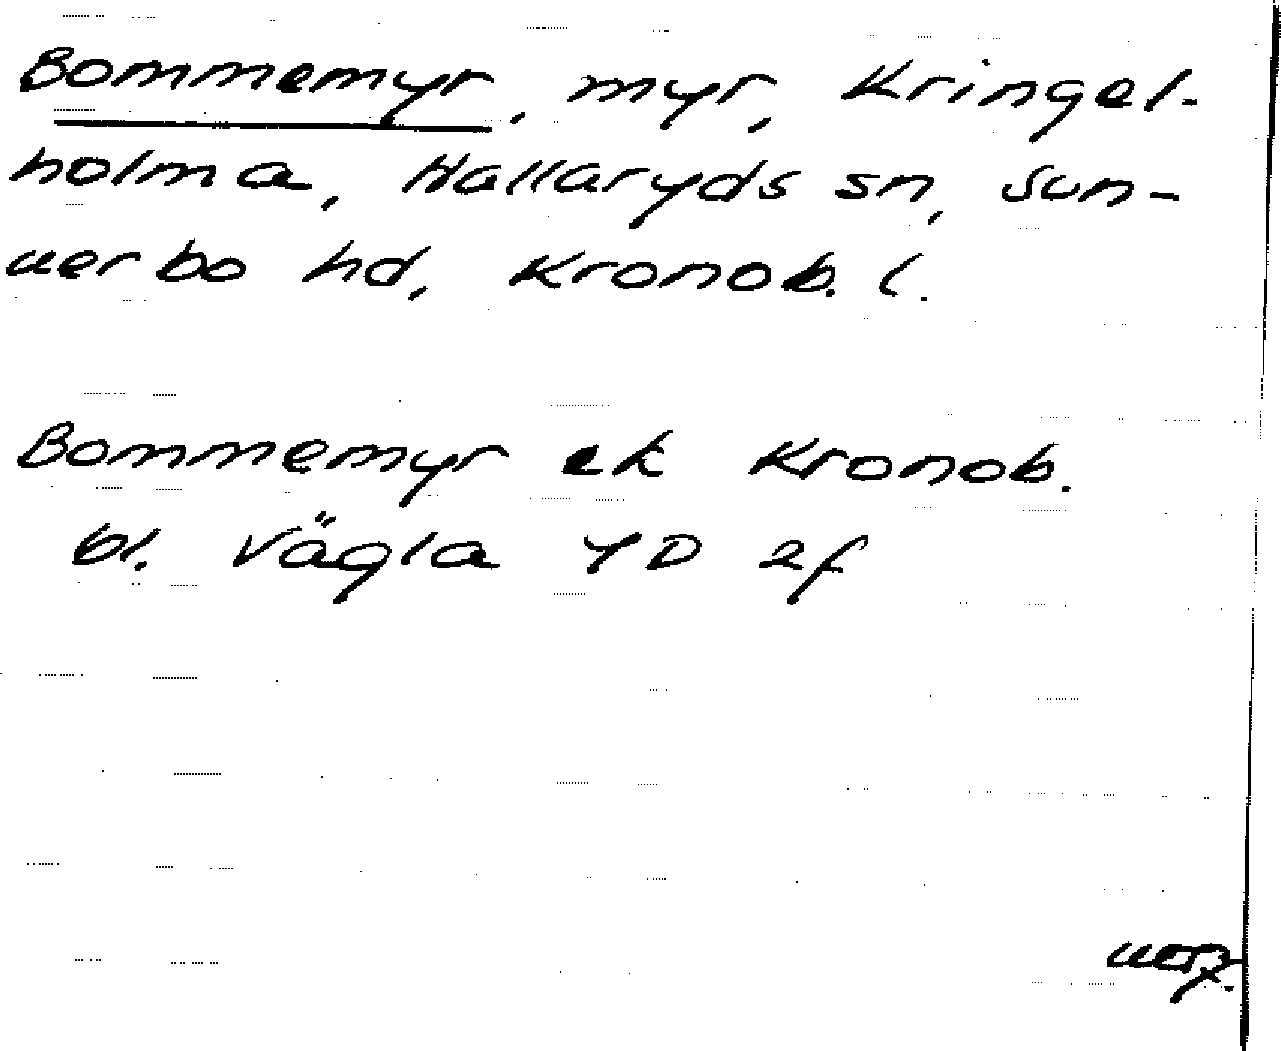 Bommemyr, myr, Kringel-
holma, Hallaryds sn, Sun-
nerbo hd, Kronob. l.
Bommemyr ek Kronob.
bl. Vägla 4D 2f